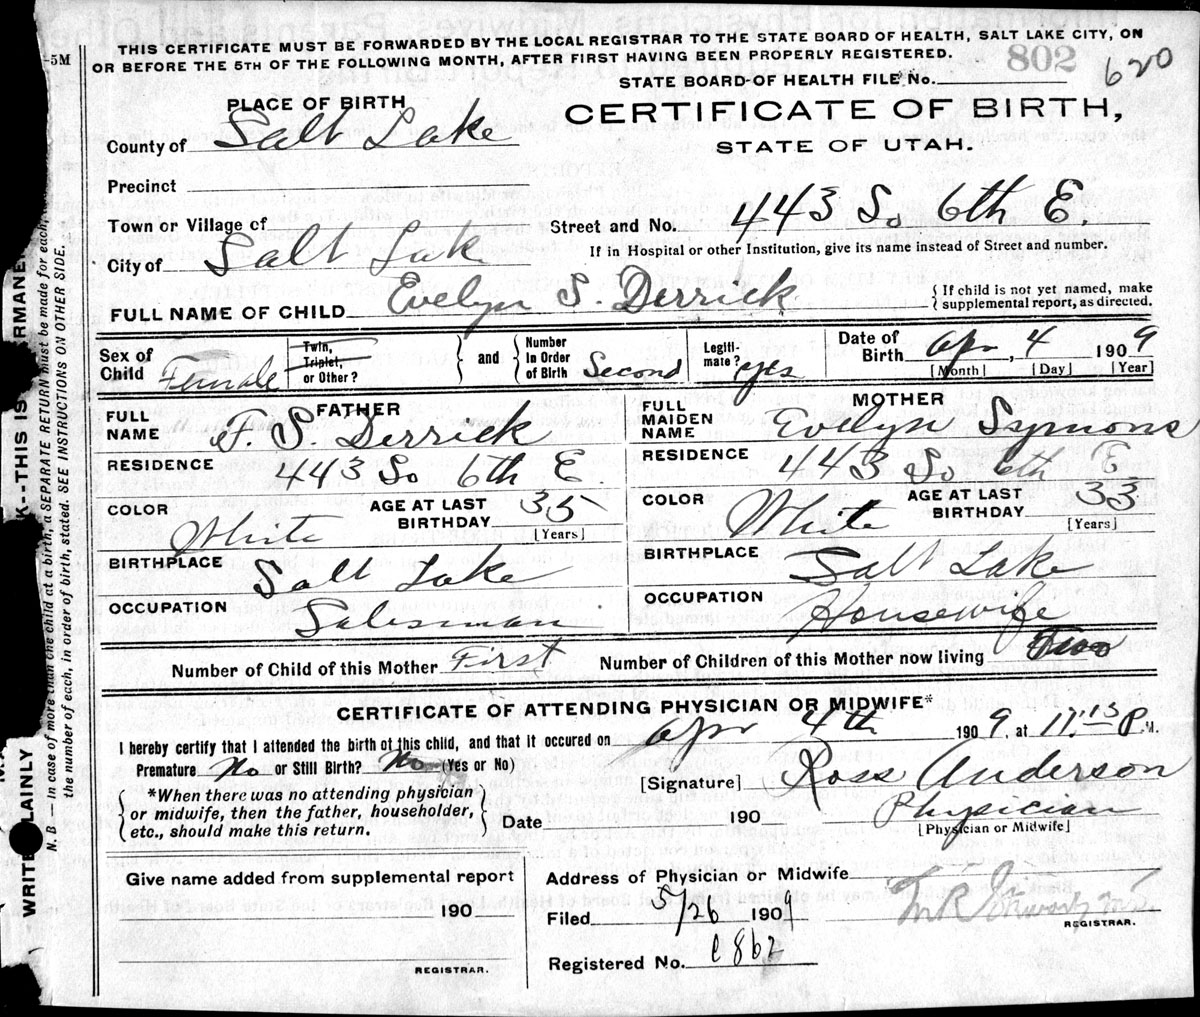 THIS CERTIFICATE MUST BE FORWARDED BY THE LOCAL REGISTRAR TO THE STATE BOARD OF HEALTH, SALT LAKE CITY, ON
OR BEFORE THE 5TH OF THE FOLLOWING MONTH, AFTER FIRST HAVING BEEN PROPERLY REGISTERED.
-5M
802
620
STATE BOARD OF HEALTH FILE No.
PLACE OF BIRTH
CERTIFICATE OF BIRTH,
County of Salt Lake
STATE OF UTAH.
Precinct
Town or Village of
Street and No. 443 So 6th E.
If in Hospital or other Institution, give its name instead of Street and number.
City of Salt Lake
FULL NAME OF CHILD Evelyn S. Derrick
{ If child is not yet named, make
supplemental report, as directed.
Sex of Child Female
Twin, Triplet, or Other?
and
Number In Order of Birth Second
Legiti-mate? yes
Date of Birth Apr, 4 1909
[Month] [Day] [Year]
FATHER
FULL NAME F. S. Derrick
RESIDENCE 443 So 6th E
COLOR White
AGE AT LAST BIRTHDAY 35
[Years]
BIRTHPLACE Salt Lake
OCCUPATION Salesman
MOTHER
FULL MAIDEN NAME Evelyn Symons
RESIDENCE 443 So 6th E
COLOR White
AGE AT LAST BIRTHDAY 33
[Years]
BIRTHPLACE Salt Lake
OCCUPATION Housewife
Number of Child of this Mother First
Number of Children of this Mother now living Two
CERTIFICATE OF ATTENDING PHYSICIAN OR MIDWIFE*
I hereby certify that I attended the birth of this child, and that it occured on Apr 4th 1909, at 11. P.M.
Premature No or Still Birth? No (Yes or No)
[Signature] Ross Anderson
*When there was no attending physician
or midwife, then the father, householder,
etc., should make this return.
Date 190
Physician
[Physician or Midwife]
Give name added from supplemental report
190
REGISTRAR.
Address of Physician or Midwife
Filed 5/26 1909
REGISTRAR.
Registered No. 862
WRITE PLAINLY
K--THIS IS
RMANE
N. B.—In case of more than one child at a birth, a SEPARATE RETURN must be made for each,
the number of each, in order of birth, stated. SEE INSTRUCTIONS ON OTHER SIDE.